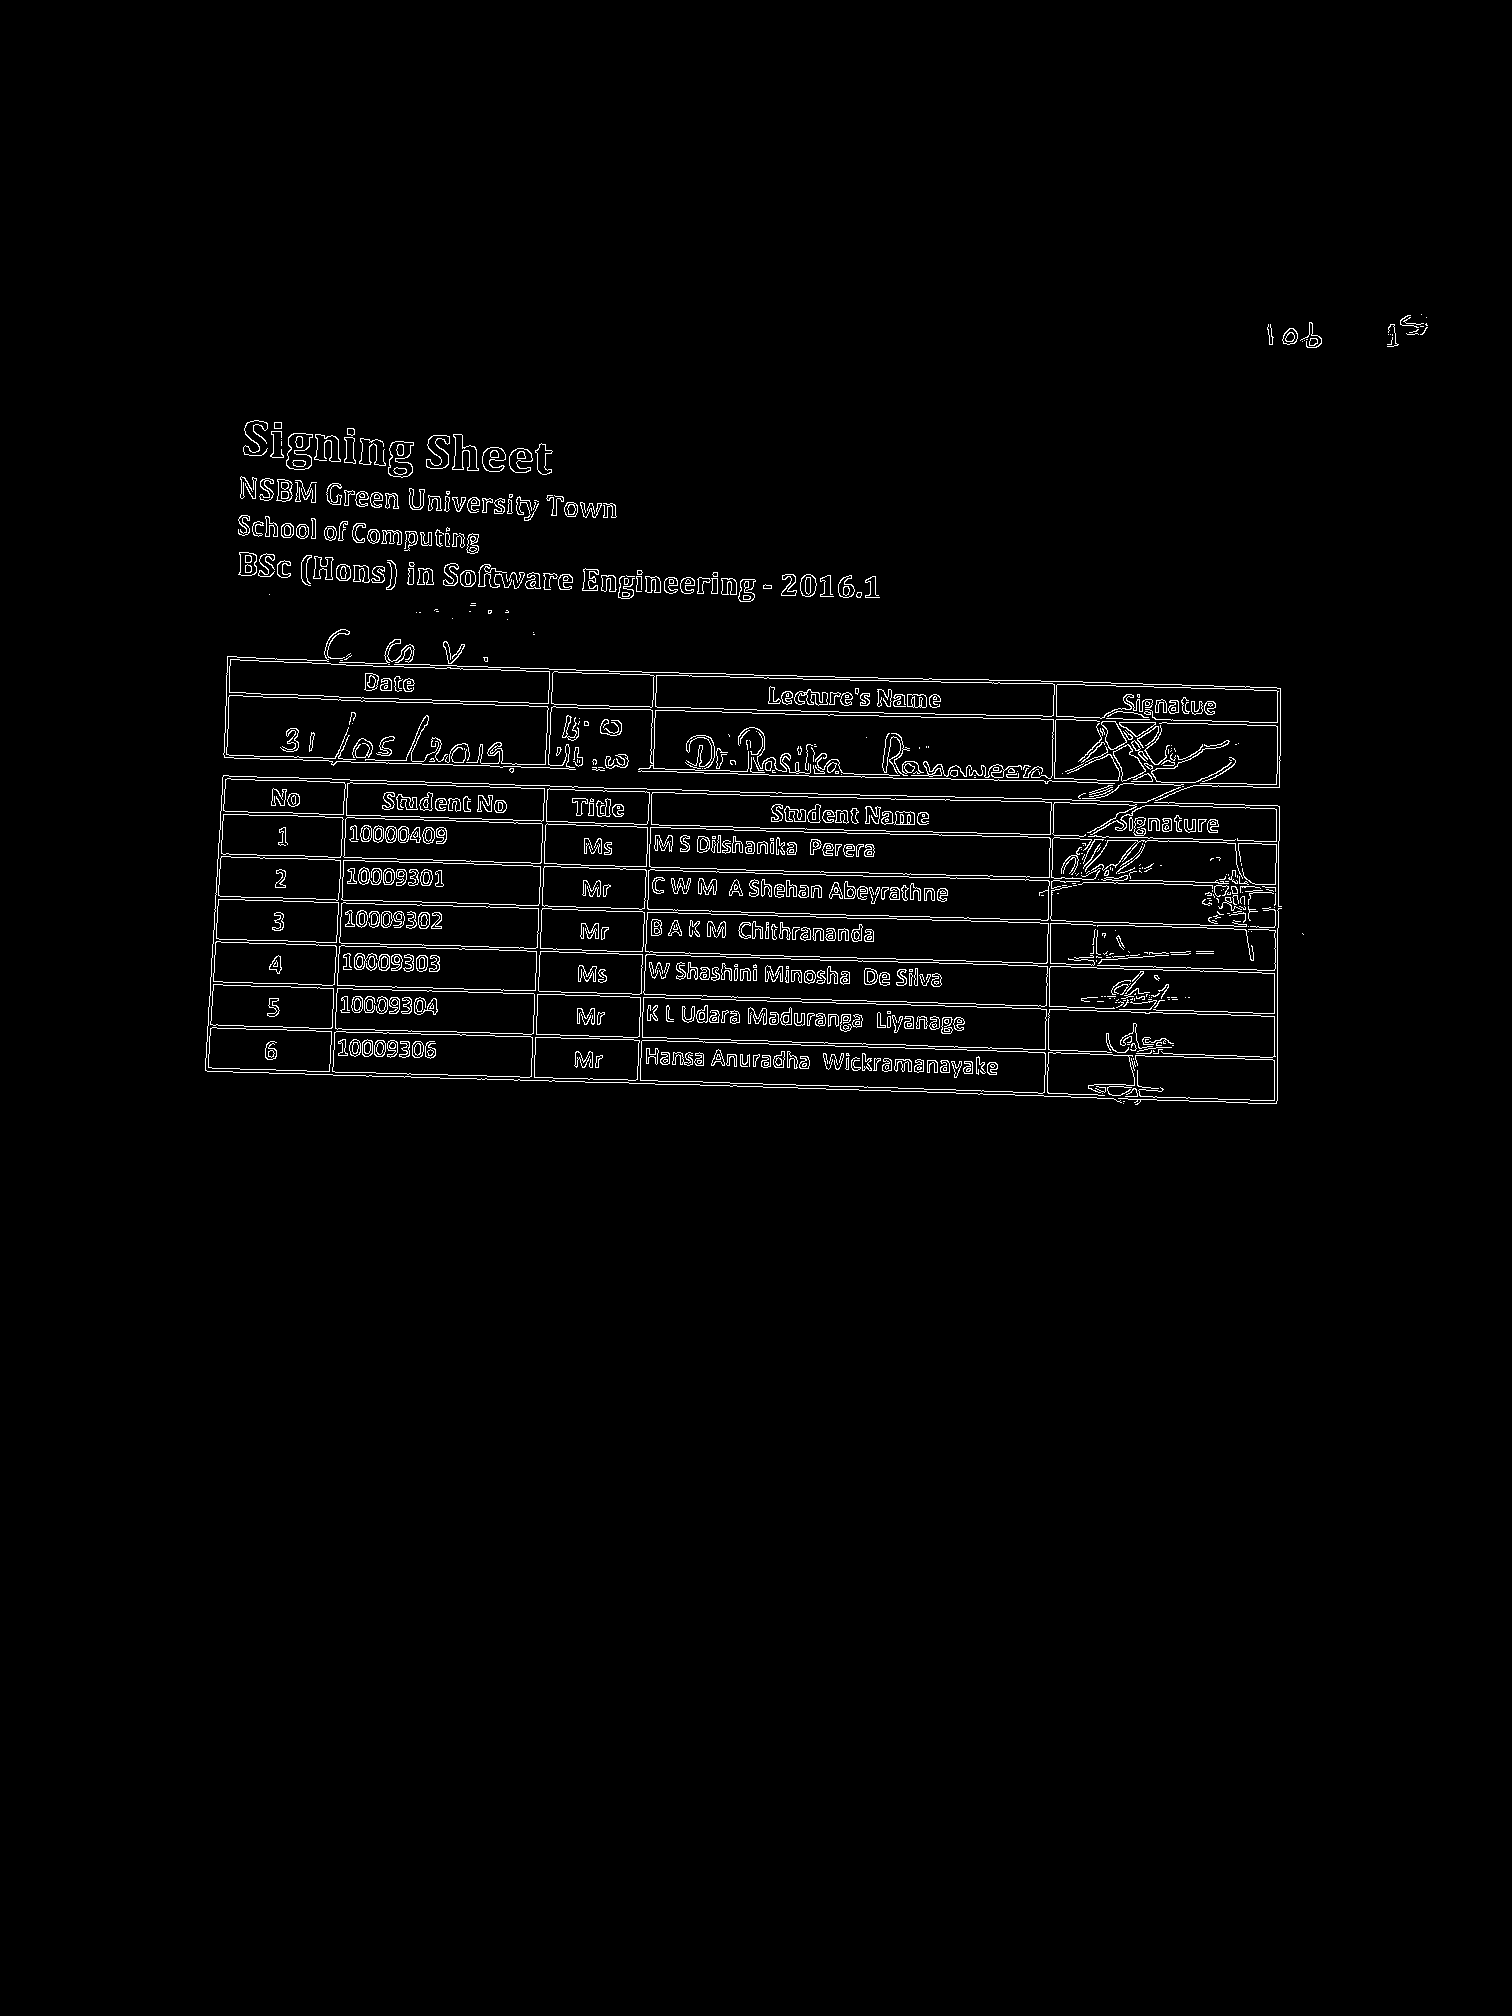 106 1st
Signing Sheet
NSBM Green University Town
School of Computing
BSc (Hons) in Software Engineering - 2016.1
Date Lecture's Name Signatue
31/05/2019. Dr. Rasika Ranaweera
No Student No Title Student Name Signature
1 10000409 Ms M S Dilshanika Perera
2 10009301 Mr C W M A Shehan Abeyrathne
3 10009302 Mr B A K M Chithrananda
4 10009303 Ms W Shashini Minosha De Silva
5 10009304 Mr K L Udara Maduranga Liyanage
6 10009306 Mr Hansa Anuradha Wickramanayake